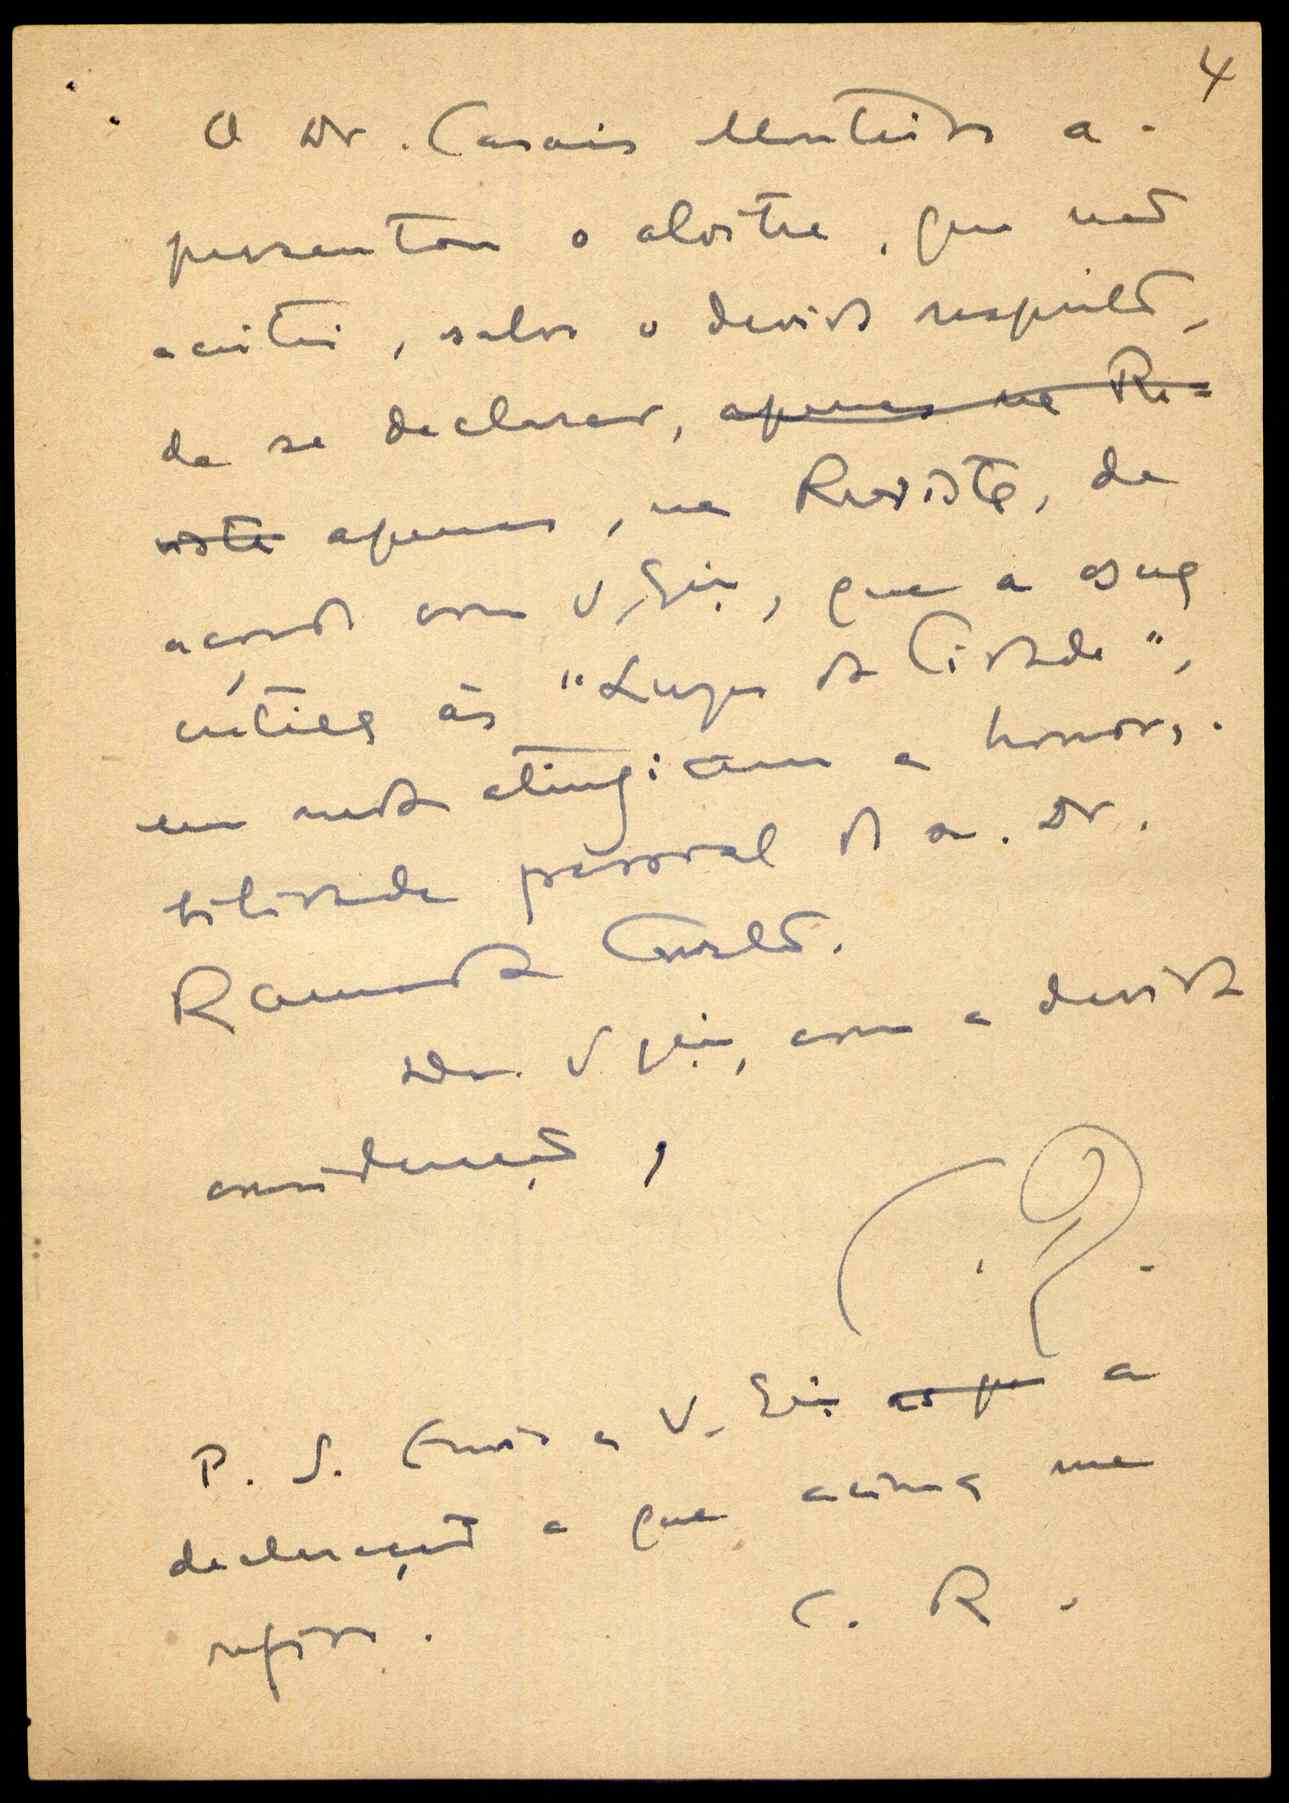 4
O Dr. Casais Monteiro a-
presentou o alvitre, que não
aceitei, salvo o devido respeito,
de se declarar, apenas na Re-
vista apenas, na Revista, de
acordo com V. Exia, que a sua
crítica às "Luzes da Cidade",
em nada atingiram a honora-
bilidade pessoal do sr. Dr.
Ramada Curto.
De V. Exia, com a devida
consideração,
C. R.
P. S. Envio a V. Exia as pa a
declaração a que acima me
refiro. C. R.